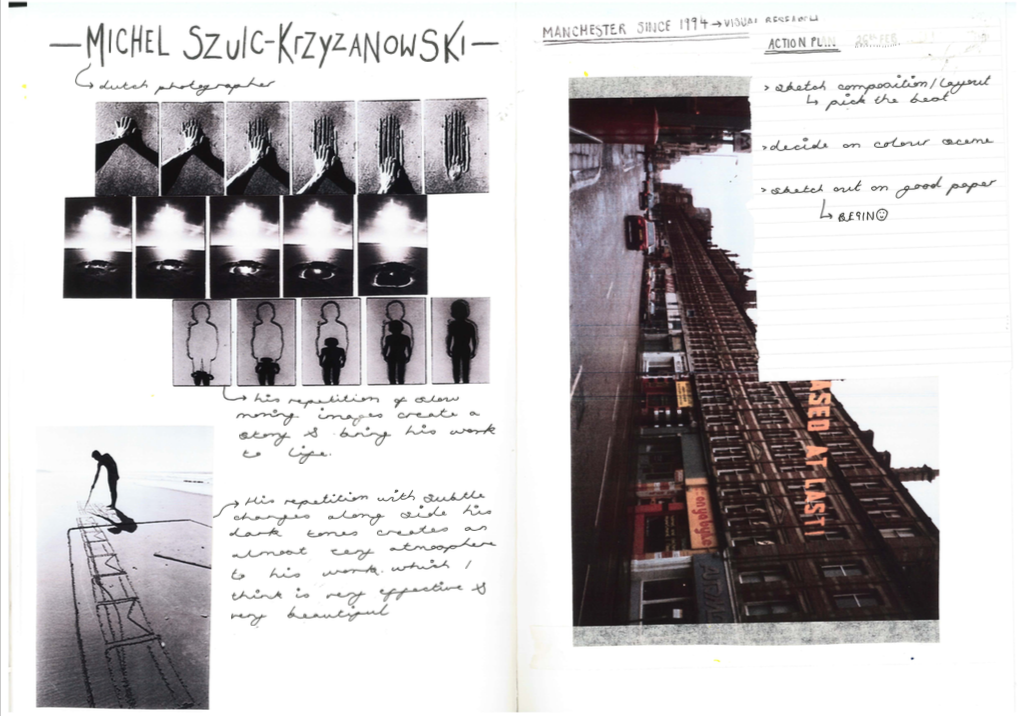 —MICHEL SZULC-KRZYZANOWSKI—
dutch photographer
his repetition of slow
moving images create a
story & bring his work
to life.
His repetition with subtle
changes along side his
dark tones creates an
almost eery atmosphere
to his work. which I
think is very effective &
very beautiful
MANCHESTER SINCE 1994 → VISUAL RESEARCH
ACTION PLAN 26TH FEB
> sketch composition/layout
↳ pick the best
> decide on colour sceme
> sketch out on good paper
↳ BEGIN☺
ASED AT LAST!